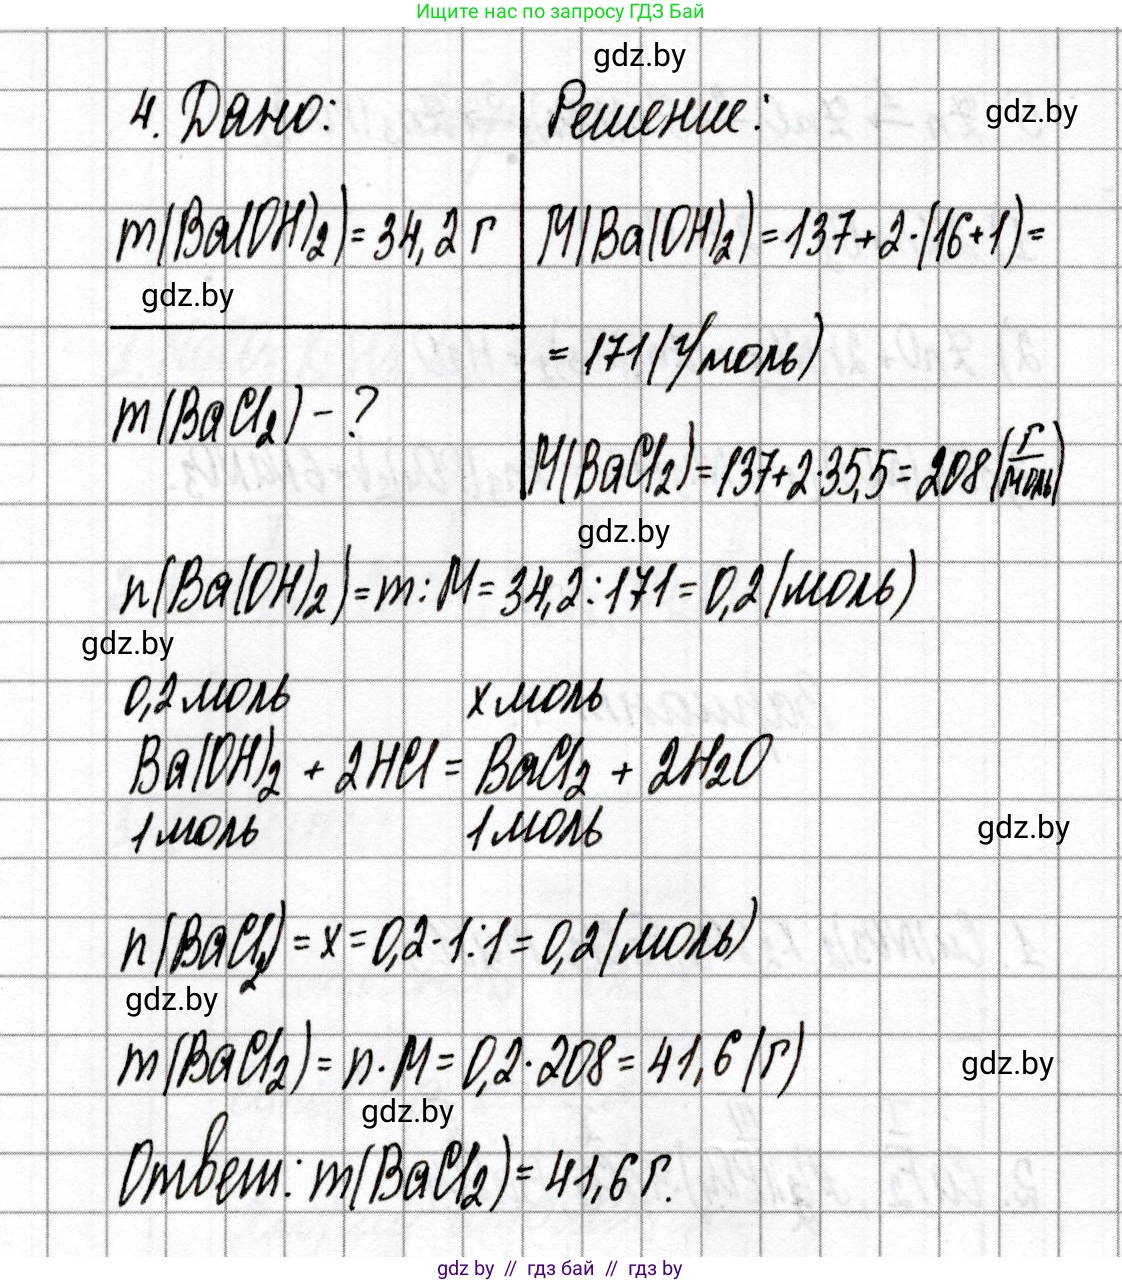 Ищите нас по запросу ГДЗ Бай
gdz.by
4. Дано:
Решение:
gdz.by
m(Ba(OH)₂) = 34,2 г
M(Ba(OH)₂) = 137 + 2·(16+1) =
gdz.by
= 171 (г/моль)
m(BaCl₂) - ?
M(BaCl₂) = 137+2·35,5 = 208 (г/моль)
gdz.by
n(Ba(OH)₂) = m : M = 34,2 : 171 = 0,2 (моль)
gdz.by
0,2 моль x моль
Ba(OH)₂ + 2HCl = BaCl₂ + 2H₂O
1 моль 1 моль
gdz.by
n(BaCl₂) = x = 0,2·1:1 = 0,2 (моль)
gdz.by
m(BaCl₂) = n·M = 0,2·208 = 41,6 (г)
gdz.by
gdz.by
Ответ: m(BaCl₂) = 41,6 г.
gdz by // гдз бай // гдз by